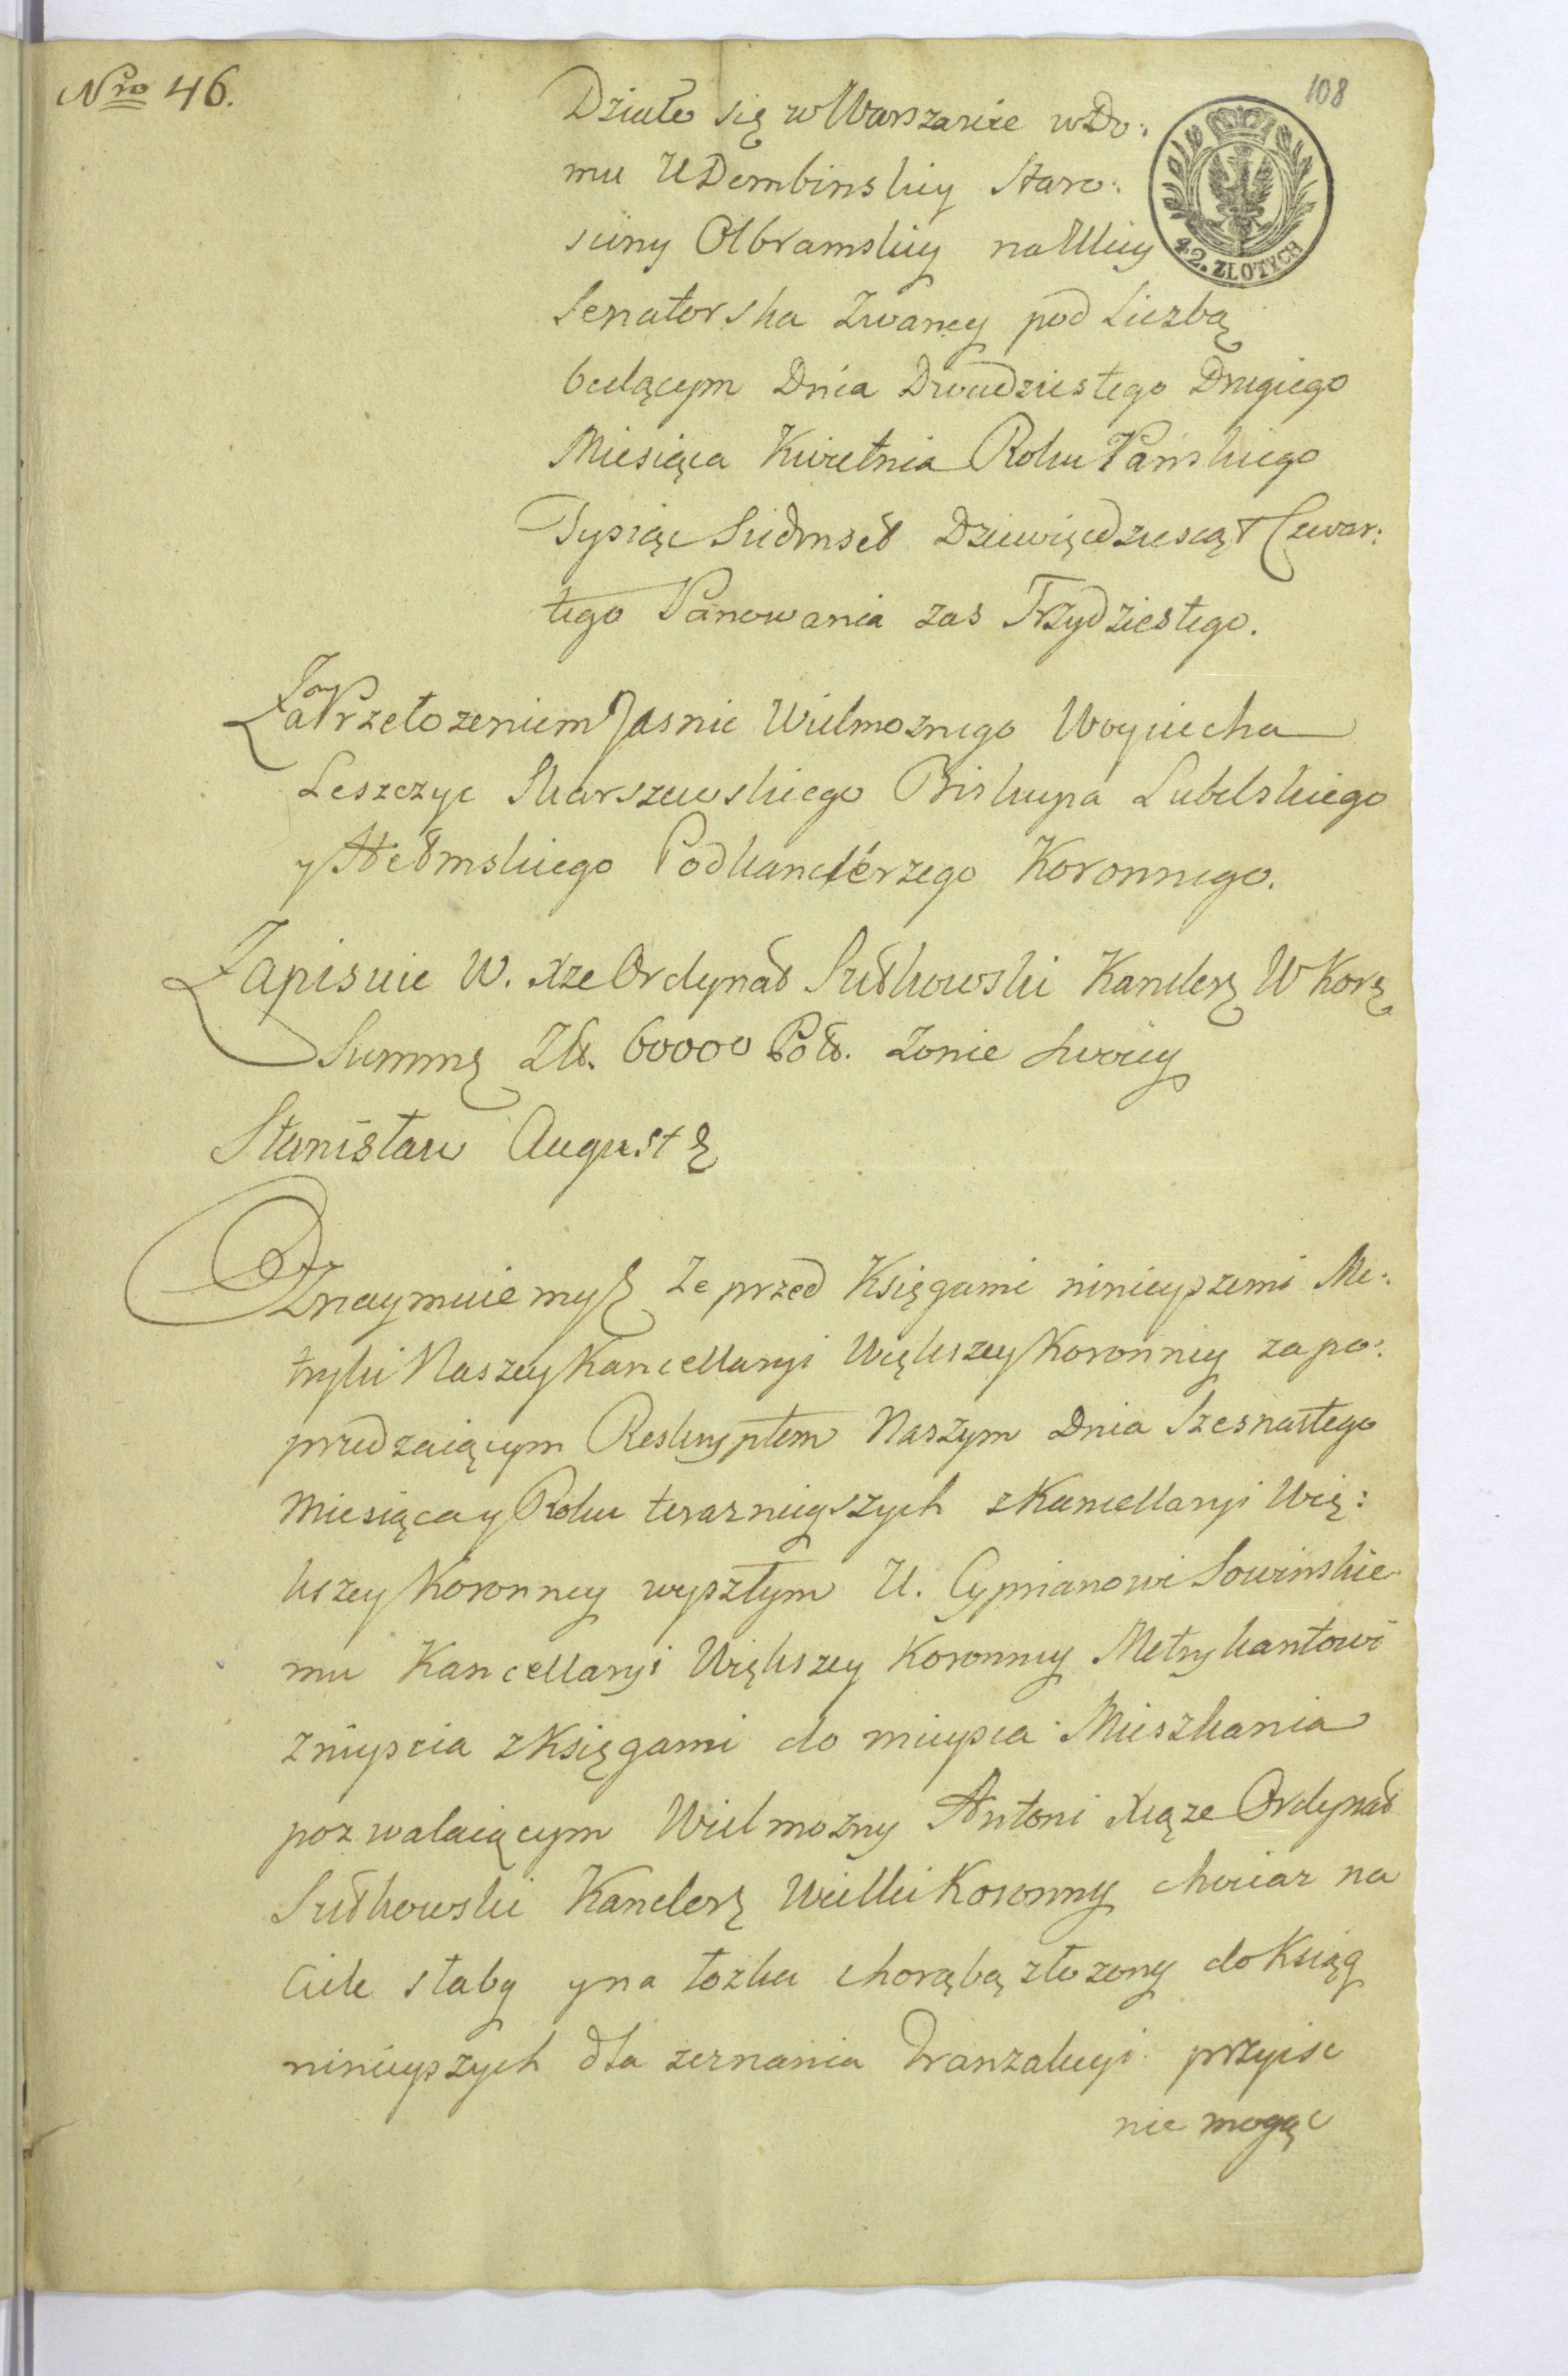 Nro 46.
108
Działo się w Warszawie w Do:
mu U Dembinskiy Staro:
sciny Olbramskiy na Ulicy
4.2. ZŁOTYCH
Senatorska Zwaney pod Liczbą
bedącym Dnia Dwudziestego Drugiego
Miesiąca Kwietnia Roku Pańskiego
Tysiąc Siedmset Dziewięcdziesiąt Czwar:
tego Panowania zas Trzydziestego.
Za Przełozeniem Jasnie Wielmoznego Woyciecha
Leszczyc Skarszewskiego Biskupa Lubelskiego
y Hełmskiego Podkanclérzego Koronnego.
Zapisuie W. Xze Ordynat Sułkowski Kanclerz W Korę
Summę Zł. 60000 Pol. Zonie swoiey
Stanisław August
Oznaymuiemy Ze przed Księgami ninieyszemi Me:
tryki Naszey Kancellaryi Większey Koronney za po:
przedzaiącym Reskryptem Naszym Dnia Szesnastego
Miesiąca y Roku teraznieyszych z Kancellaryi Wię:
kszey Koronney wyszłym U. Cypryanowi Sowinskie
mu Kancellaryi Większey Koronney Metrykantowi
Znieyscia z Księgami do mieysca Mieszkania
pozwalaiącym Wielmozny Antoni Xiąze Ordynat
Sułkowski Kanclerz Wielki Koronny chociaz na
Ciele słaby y na łozku chorąbą złozony do Ksiąg
ninieyszych dla zeznania Tranzakcyi przyisc
nie mogąc